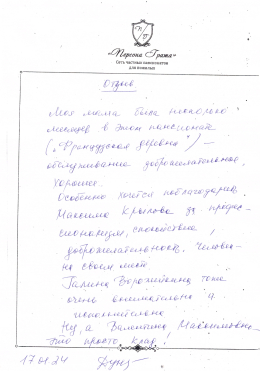 П/Г
«Персона Гранта»
Сеть частных пансионатов
для пожилых
Отзыв
Моя мама была несколько
месяцев в этом пансионате
("Французская деревня") –
обслуживание доброжелательное,
хорошее.
Особенно хочется поблагодарить
Максима Крылова за профес-
сионализм, спокойствие,
доброжелательность. Человек
на своем месте
Галина Ворожбенна тоже
очень внимательна и
исполнительна
Ну, а Валентина Максимовна –
это просто клад!
17.01.24